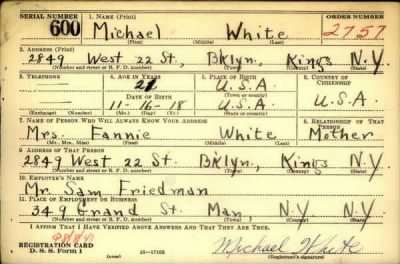 SERIAL NUMBER 1. NAME (Print) ORDER NUMBER
600 Michael White 2757
(First) (Middle) (Last)
2. ADDRESS (Print)
2849 West 22 St., Bklyn, Kings N.Y.
(Number and street or R. F. D. number) (Town) (County) (State)
3. TELEPHONE 4. AGE IN YEARS 5. PLACE OF BIRTH 6. COUNTRY OF CITIZENSHIP
21 U.S.A.
DATE OF BIRTH (Town or county)
11-16-18 U.S.A. U.S.A.
(Exchange) (Number) (Mo.) (Day) (Yr.) (State or country)
7. NAME OF PERSON WHO WILL ALWAYS KNOW YOUR ADDRESS 8. RELATIONSHIP OF THAT PERSON
Mrs. Fannie White Mother
(Mr., Mrs., Miss) (First) (Middle) (Last)
9. ADDRESS OF THAT PERSON
2849 West 22 St. Bklyn, Kings N.Y.
(Number and street or R. F. D. number) (Town) (County) (State)
10. EMPLOYER'S NAME
Mr. Sam Friedman
11. PLACE OF EMPLOYMENT OR BUSINESS
349 Grand St. Man, N.Y. N.Y.
(Number and street or R. F. D. number) (Town) (County) (State)
I AFFIRM THAT I HAVE VERIFIED ABOVE ANSWERS AND THAT THEY ARE TRUE.
REGISTRATION CARD
D. S. S. Form 1 16-17105 Michael White
(Registrant's signature)